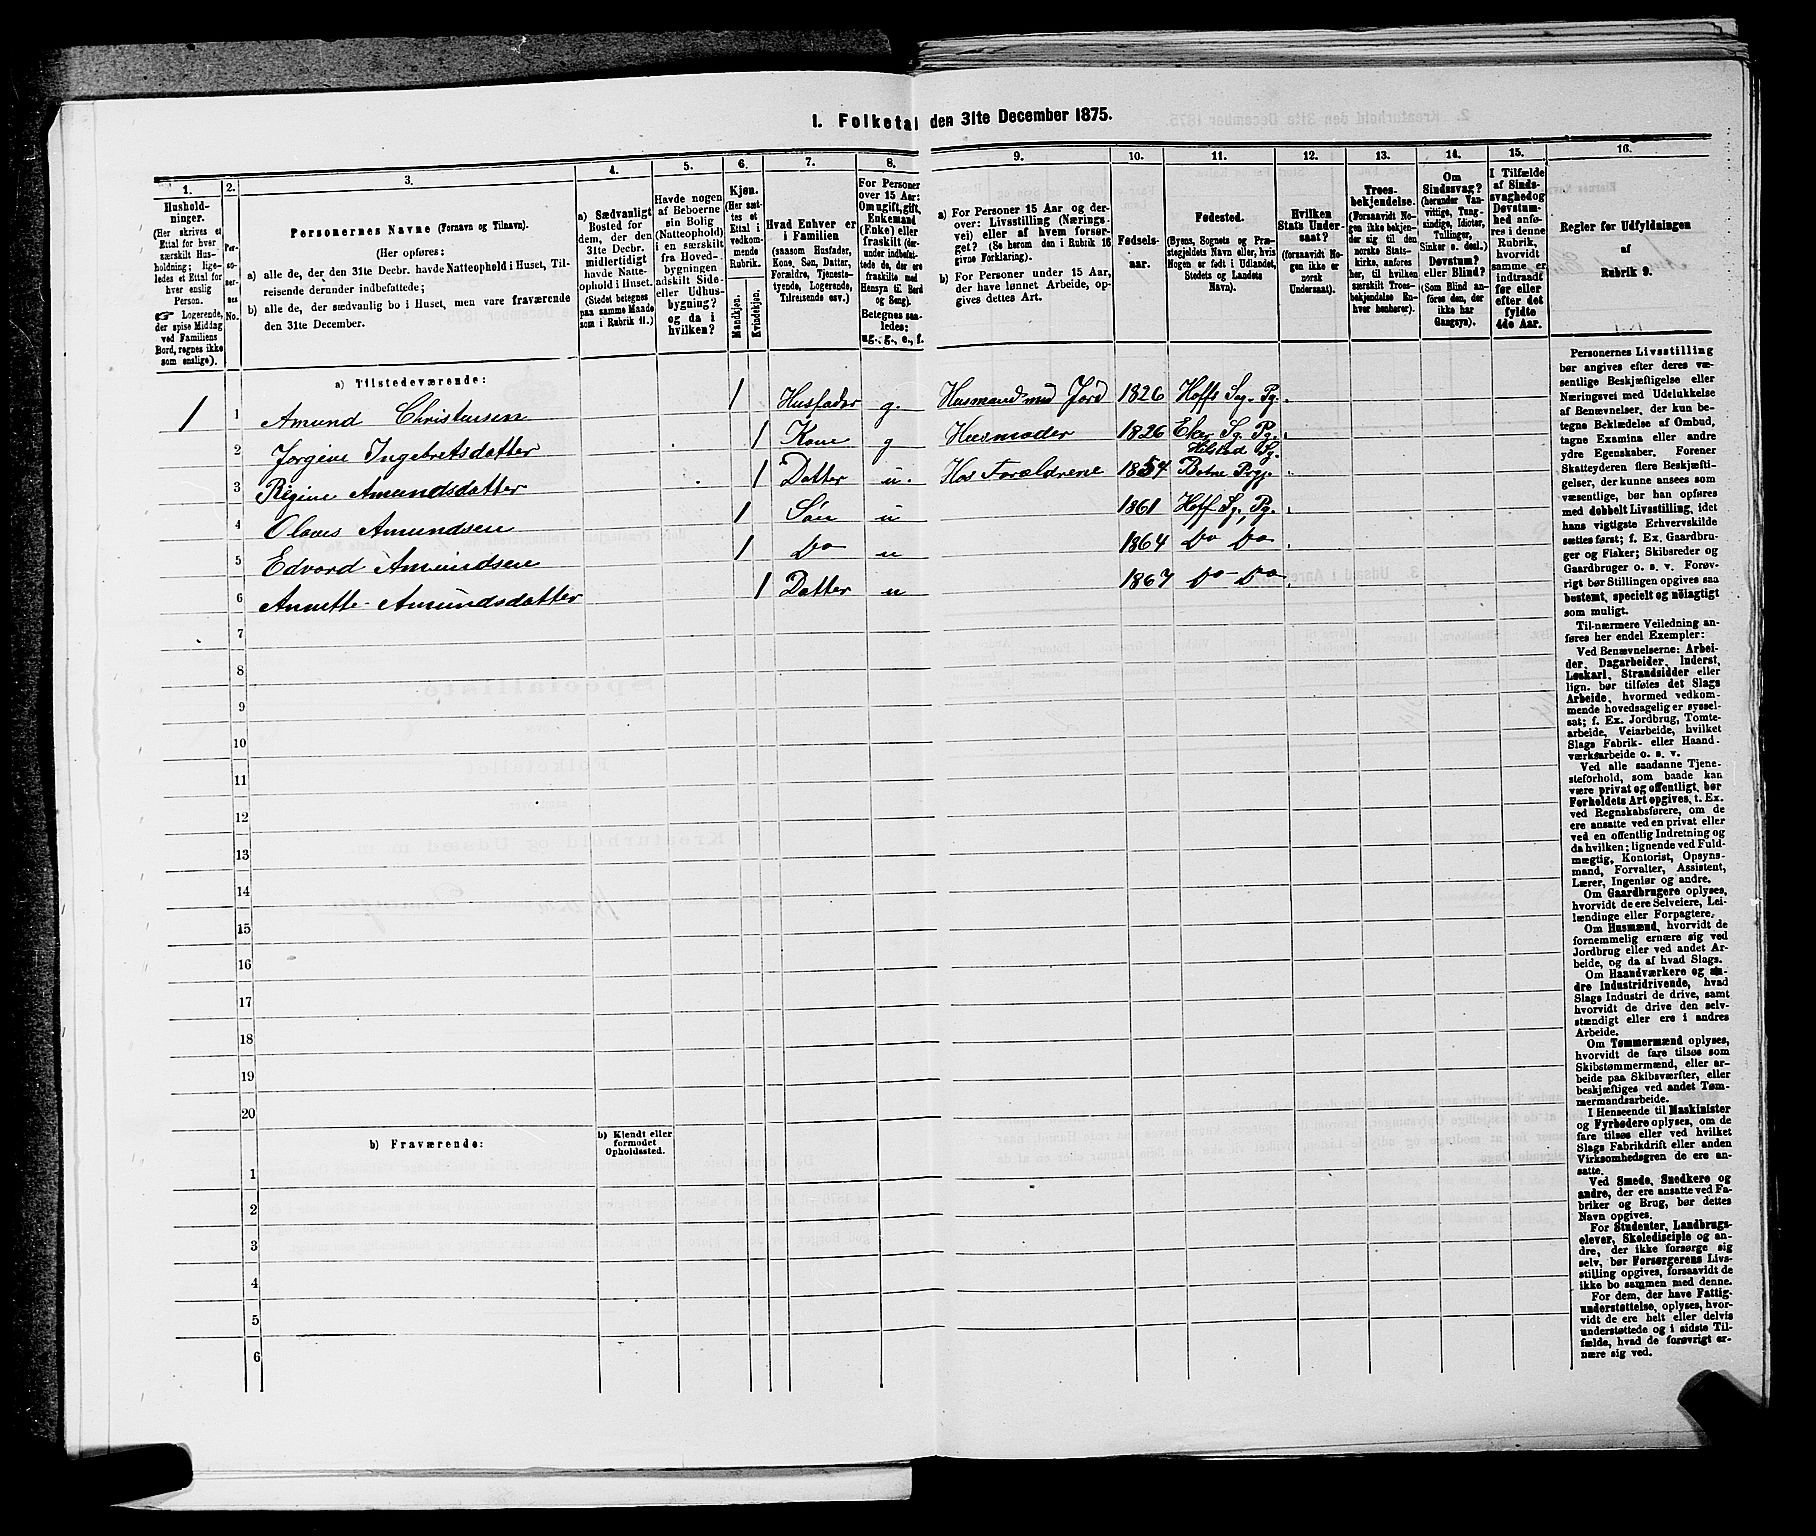 I. Folketal den 31te December 1875.
1.
Hushold-
ninger.
(Her skrives et
Ettal for hver
særskilt Hus-
holdning; lige-
ledes et Ettal for
hver enslig
Person.
☞ Logerende,
der spise Middag
ved Familiens
Bord, regnes ikke
som enslige).
2.
Per-
so-
ner-
nes
No.
3.
Personernes Navne (Fornavn og Tilnavn).
(Her opføres:
a) alle de, der den 31te Decbr. havde Natteophold i Huset, Til-
reisende derunder indbefattede;
b) alle de, der sædvanlig bo i Huset, men vare fraværende
den 31te December.
4.
a) Sædvanligt
Bosted for
dem, der den
31te Decbr.
midlertidigt
havde Natte-
ophold i Huset.
(Stedet betegnes
paa samme Maade
som i Rubrik 11.)
5.
Havde nogen
af Beboerne
sin Bolig
(Natteophold)
i en særskilt
fra Hoved-
bygningen
adskilt Side-
eller Udhus-
bygning?
og da i
hvilken?
6.
Kjøn.
(Her sæt-
tes et
Ettal i
vedkom-
mende
Rubrik.
Mandkjøn.
Kvindekjøn.
7.
Hvad Enhver er
i Familien
(saasom Husfader,
Kone, Søn, Datter,
Forældre, Tjeneste-
tyende, Logerende,
Tilreisende osv.)
8.
For Personer
over 15 Aar:
Om ugift, gift,
Enkemand
(Enke) eller
fraskilt (der-
under indbefat-
tede de, der ere
fraskilte med
Hensyn til Bord
og Seng).
Betegnes saa-
ledes:
ug., g., e., f.
9.
a) For Personer 15 Aar og der-
over: Livsstilling (Nærings-
vei) eller af hvem forsør-
get? (Se herom den i Rubrik 16
givne Forklaring).
b) For Personer under 15 Aar,
der have lønnet Arbeide, op-
gives dettes Art.
10.
Fødsels-
aar.
11.
Fødested.
(Byens, Sognets og Præ-
stegjeldets Navn eller, hvis
Nogen er født i Udlandet,
Stedets og Landets
Navn).
12.
Hvilken
Stats Under-
saat?
(forsaavidt No-
gen ikke er
norsk
Undersaat).
13.
Troes-
bekjendelse.
(Forsaavidt No-
gen ikke bekjen-
der sig til den
norske Stats-
kirke, anføres
her, til hvilken
særskilt Troes-
bekjendelse En-
hver henhører).
14.
Om
Sindssvag?
(herunder Van-
vittige, Tung-
sindige, Idioter,
Tullinger,
Sinker o. desl.)
Døvstum?
eller Blind?
(Som Blind an-
føres den, der
ikke har
Gangsyn).
15.
I Tilfælde
af Sinds-
svaghed og
Døvstum-
hed anfø-
res i denne
Rubrik,
hvorvidt
samme er
indtraadt
før eller
efter det
fyldte
4de Aar.
16.
Regler for Udfyldningen
af
Rubrik 9.
a) Tilstedeværende:
1 1 Amund Christensen 1 Husfader g. Husmand med Jord 1826 Hoffs Sg. Pg.
2 Jørgine Ingebretsdatter 1 Kone g Husmoder 1826 Eker Sg. Pg.
3 Regine Amundsdatter 1 Datter u. Hos Forældrene 1854 Botne Prgj. Hilstad Sg.
4 Olaves Amundsen 1 Søn u 1861 Hoff Sg., Pg.
5 Edvard Amundsen 1 Do u 1864 Do Do
6 Annette Amundsdatter 1 Datter u 1867 Do Do
7
8
9
10
11
12
13
14
15
16
17
18
19
20
b) Fraværende:
b) Kjendt eller
formodet
Opholdssted.
1
2
3
4
5
6
Personernes Livsstilling
bør angives efter deres væ-
sentlige Beskjæftigelse eller
Næringsvei med Udelukkelse
af Benævnelser, der kun be-
tegne Beklædelse af Ombud,
tagne Examina eller andre
ydre Egenskaber. Forener
Skatteyderen flere Beskjæfti-
gelser, der kunne ansees som
væsentlige, bør han opføres
med dobbelt Livsstilling, idet
hans vigtigste Erhvervskilde
sættes først; f. Ex. Gaardbru-
ger og Fisker; Skibsreder og
Gaardbruger o. s. v. Forøv-
rigt bør Stillingen opgives saa
bestemt, specielt og nøiagtigt
som muligt.
Til nærmere Veiledning an-
føres her endel Exempler:
Ved Benævnelserne: Arbei-
der, Dagarbeider, Inderst,
Løskarl, Strandsidder eller
lign. bør tilføies det Slags
Arbeide, hvormed vedkom-
mende hovedsagelig er syssel-
sat; f. Ex. Jordbrug, Tomte-
arbeide, Veiarbeide, hvilket
Slags Fabrik- eller Haand-
værksarbeide o. s. v.
Ved alle saadanne Tjene-
steforhold, som baade kan
være privat og offentligt, bør
Forholdets Art opgives, t. Ex.
ved Regnskabsførere, om de
ere ansatte ved en privat eller
ved en offentlig Indretning og
da hvilken; lignende ved Fuld-
mægtig, Kontorist, Opsyns-
mand, Forvalter, Assistent,
Lærer, Ingeniør og andre.
Om Gaardbrugere oplyses,
hvorvidt de ere Selveiere, Lei-
lændinge eller Forpagtere.
Om Husmænd, hvorvidt de
fornemmelig ernære sig ved
Jordbrug eller ved andet Ar-
beide, og da af hvad Slags.
Om Haandværkere og an-
dre Industridrivende, hvad
Slags Industri de drive, samt
hvorvidt de drive den selv-
stændigt eller ere i andres
Arbeide.
Om Tømmermænd oplyses,
hvorvidt de fare tilsøs som
Skibstømmermænd, eller ar-
beide paa Skibsværfter, eller
beskjæftiges ved andet Tøm-
mermandsarbeide.
I Henseende til Maskinister
og Fyrbødere oplyses, om de
fare tilsøs eller ved hvilket
Slags Fabrikdrift eller anden
Virksomhedsgren de ere an-
satte.
Ved Smede, Snedkere og
andre, der ere ansatte ved Fa-
briker og Brug, bør dettes
Navn opgives.
For Studenter, Landbrugs-
elever, Skoledisciple og an-
dre, der ikke forsørge sig
selv, bør Forsørgerens Livs-
stilling opgives, forsaavidt de
ikke bo sammen med denne.
For dem, der have Fattig-
understøttelse, oplyses, hvor-
vidt de ere helt eller delvis
understøttede og i sidste Til-
fælde, hvad de forøvrigt er-
nære sig ved.